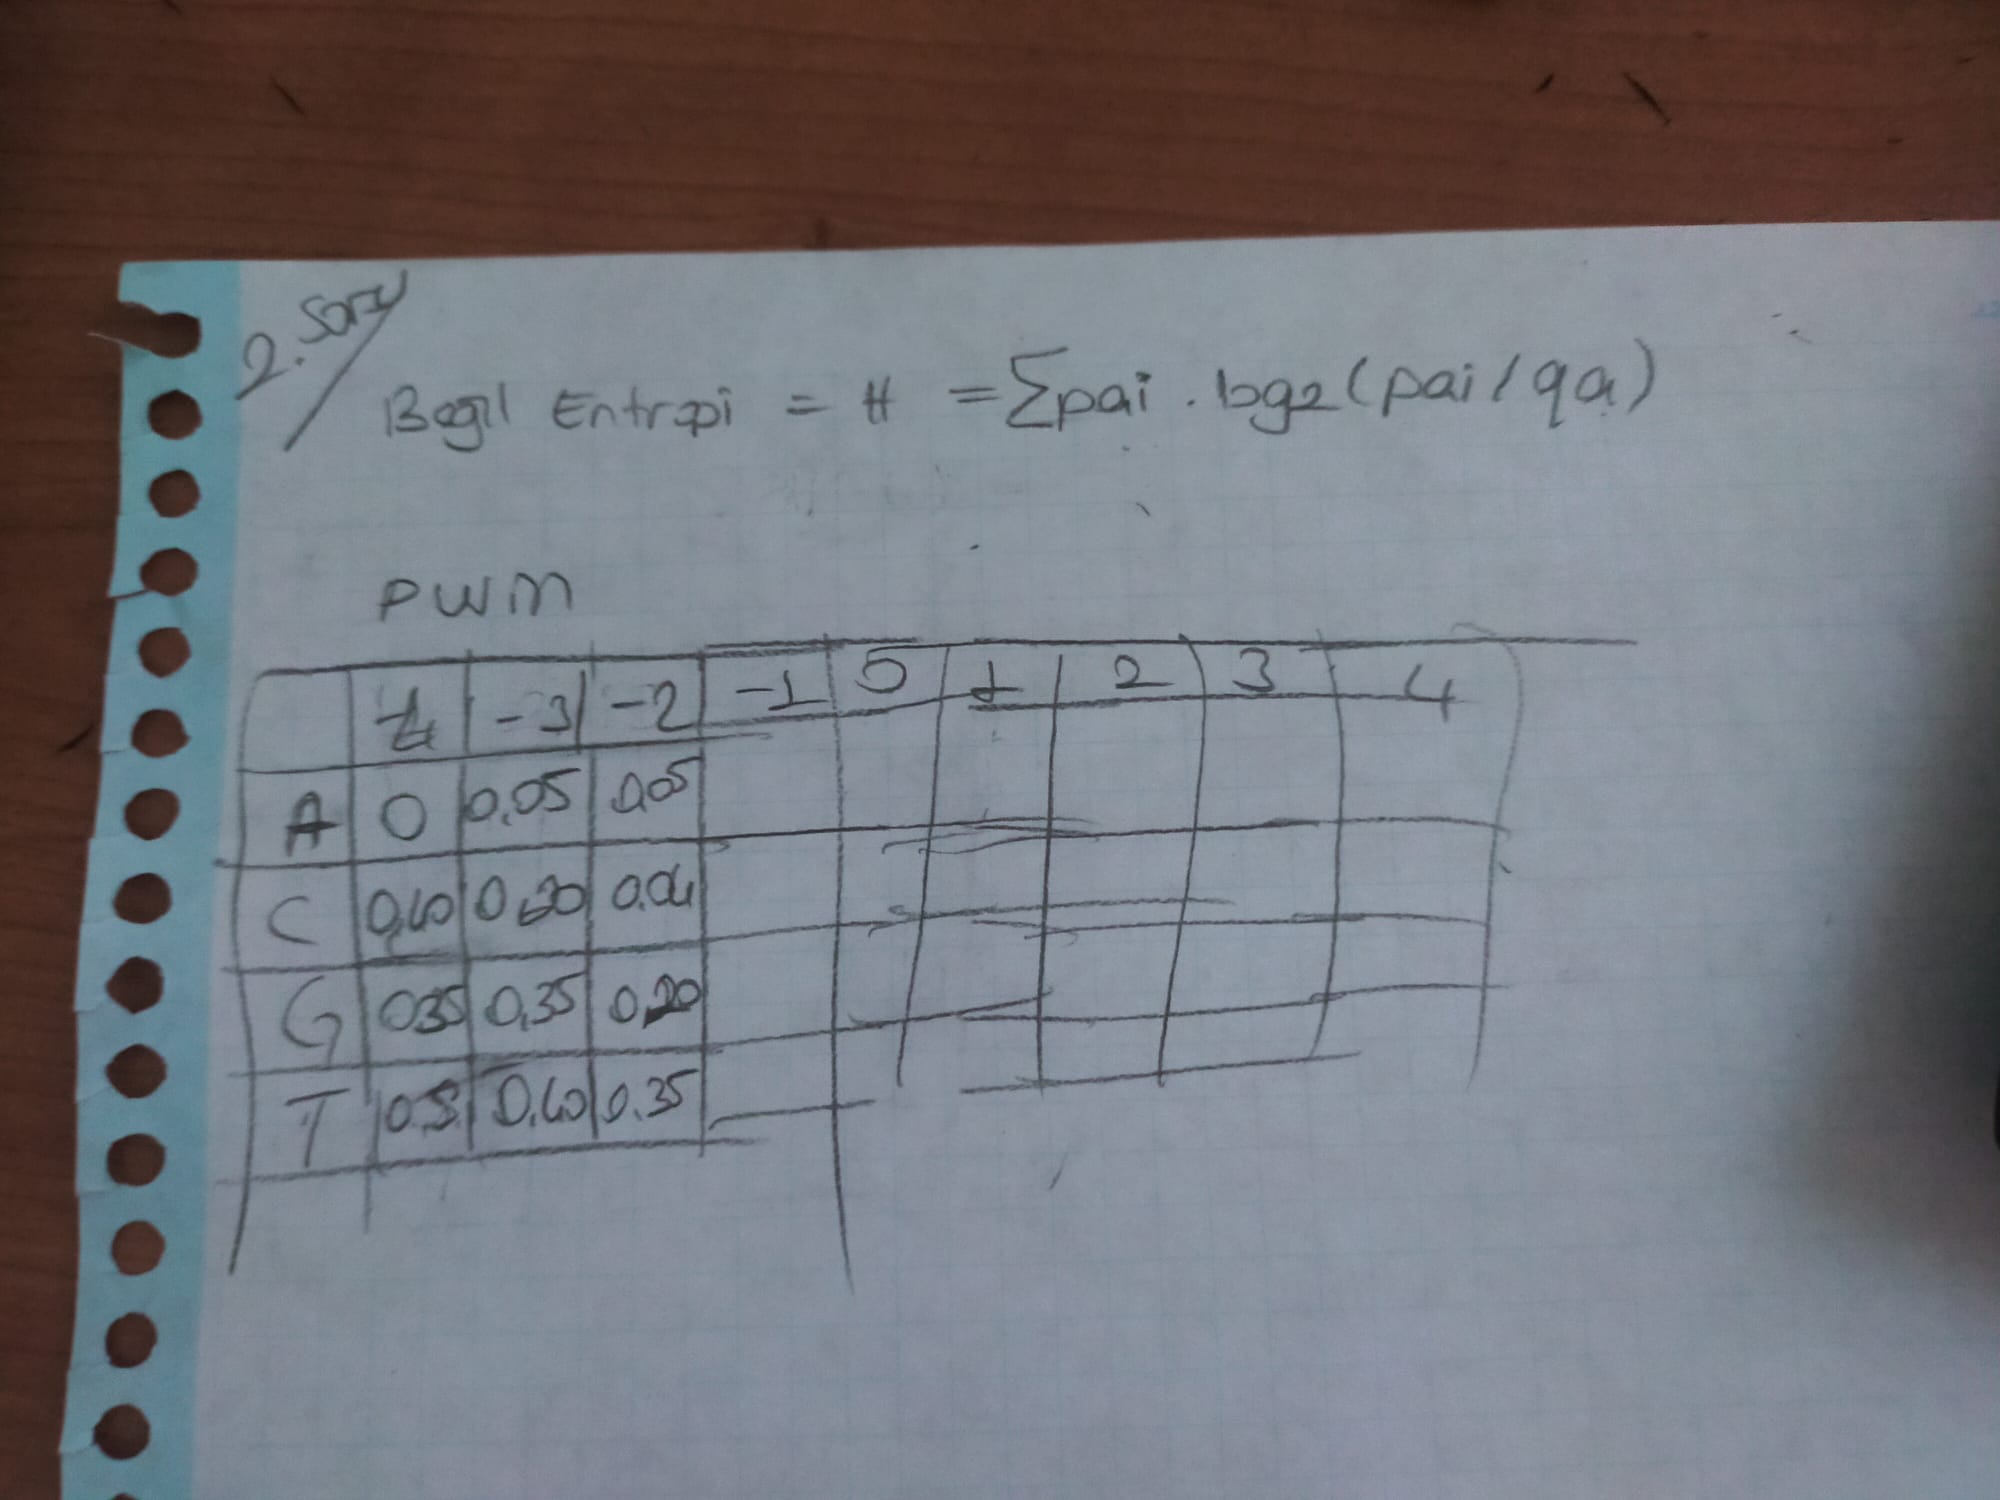 2. Soru
Bağıl Entropi = H = Σpai . log2 (pai / qa)
PWM
-4 -3 -2 -1 0 1 2 3 4
A 0 0,05 0,05
C 0,40 0,20 0,04
G 0,35 0,35 0,20
T 0,40 0,35